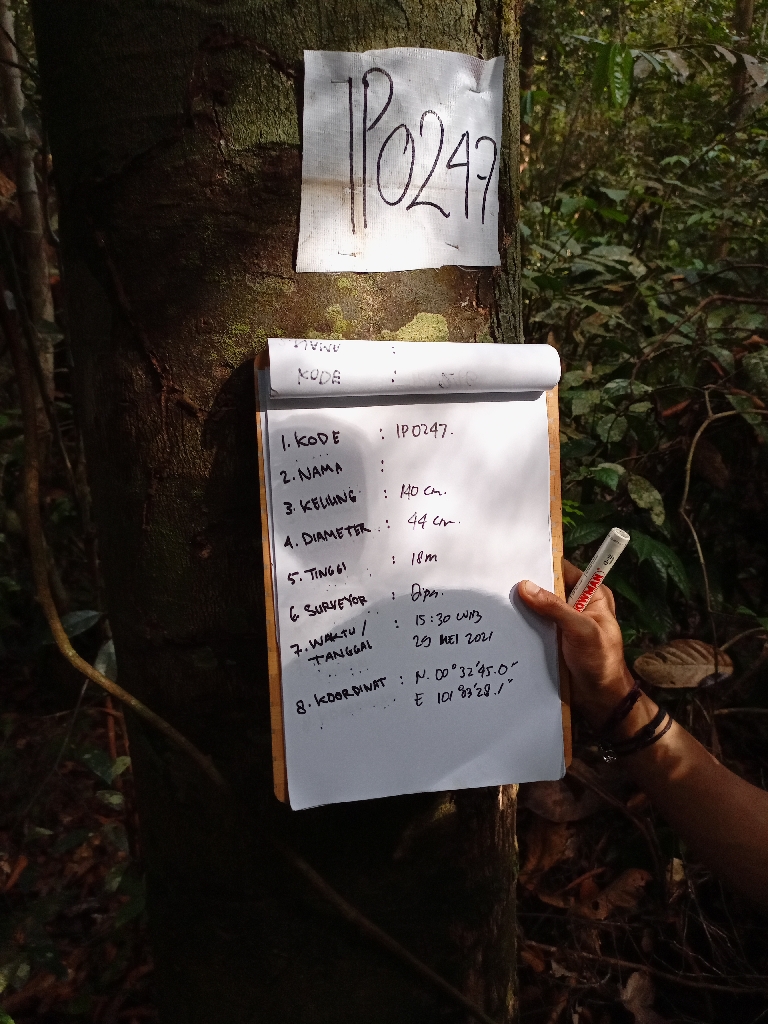 IP0247
NAMA :
KODE :
1. KODE : IP0247.
2. NAMA :
3. KELILING : 140 cm.
4. DIAMETER : 44 cm.
5. TINGGI : 18m
6. SURVEYOR :
7. WAKTU / : 15:30 WIB
TANGGAL 29 MEI 2021
8. KOORDINAT : N. 00° 32' 45.0"
E 101° 83' 28.1"
SNOWMAN